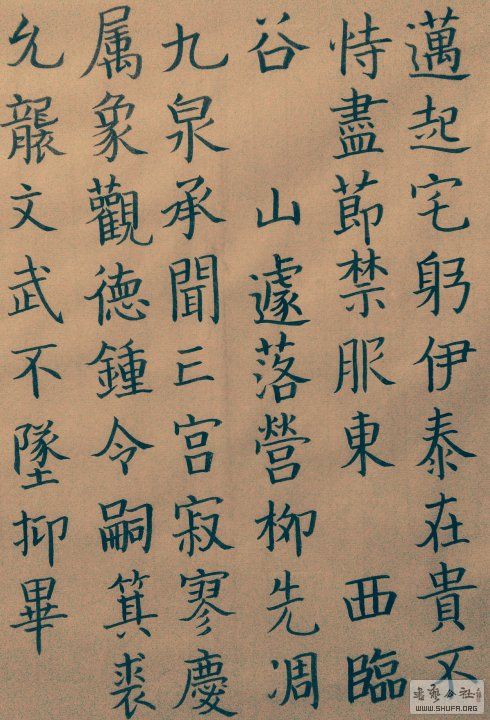 邁起宅躬伊泰在貴不
恃盡節禁服東西臨
谷山遽落營柳先凋
九泉承聞三宮寂寥慶
属象觀德鍾令嗣箕裘
允襲文武不墜抑畢
WWW.SHUFA.ORG